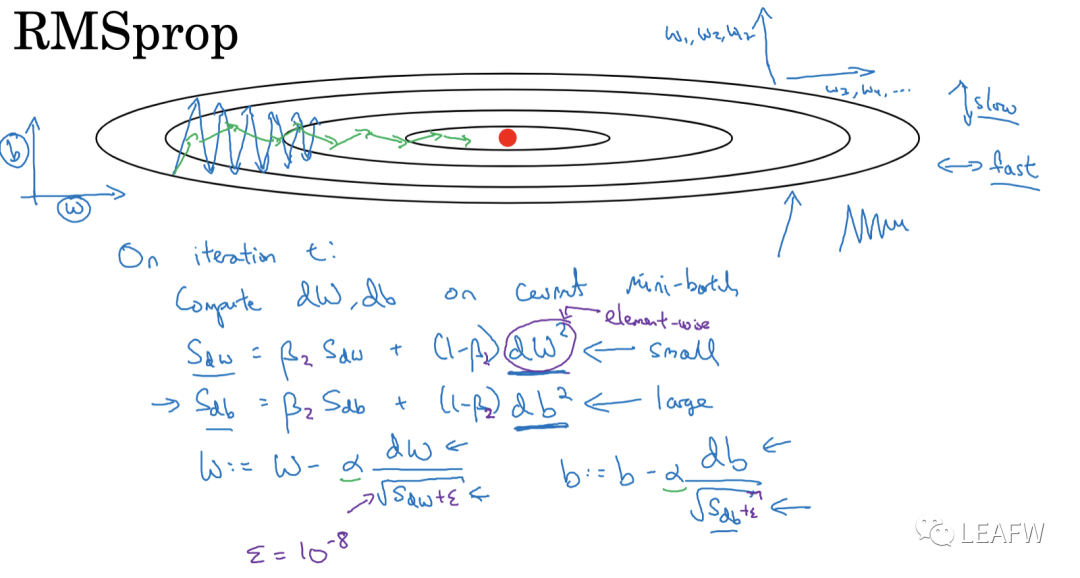 RMSprop
w₁, w₂, w₂
w₃, w₄, ...
slow
fast
b
w
On iteration t:
Compute dW, db on current mini-batch
element-wise
S_dw = β₂ S_dw + (1-β₂) dW² ← small
→ S_db = β₂ S_db + (1-β₂) db² ← large
W := W - α dW / √S_dw+ε ←
b := b - α db / √S_db+ε ←
ε = 10⁻⁸
LEAFW